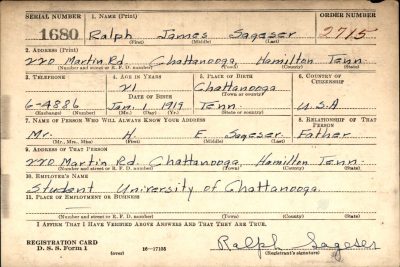 SERIAL NUMBER 1. NAME (Print) ORDER NUMBER
1680 Ralph James Sageser 2715
(First) (Middle) (Last)
2. ADDRESS (Print)
220 Martin Rd. Chattanooga, Hamilton Tenn.
(Number and street or R. F. D. number) (Town) (County) (State)
3. TELEPHONE 4. AGE IN YEARS 5. PLACE OF BIRTH 6. COUNTRY OF CITIZENSHIP
21 Chattanooga
DATE OF BIRTH (Town or county)
6-4886 Jan. 1 1919 Tenn. U.S.A
(Exchange) (Number) (Mo.) (Day) (Yr.) (State or country)
7. NAME OF PERSON WHO WILL ALWAYS KNOW YOUR ADDRESS 8. RELATIONSHIP OF THAT PERSON
Mr. H. E. Sageser Father
(Mr., Mrs., Miss) (First) (Middle) (Last)
9. ADDRESS OF THAT PERSON
220 Martin Rd. Chattanooga, Hamilton Tenn.
(Number and street or R. F. D. number) (Town) (County) (State)
10. EMPLOYER'S NAME
Student University of Chattanooga
11. PLACE OF EMPLOYMENT OR BUSINESS
(Number and street or R. F. D. number) (Town) (County) (State)
I AFFIRM THAT I HAVE VERIFIED ABOVE ANSWERS AND THAT THEY ARE TRUE.
REGISTRATION CARD
D. S. S. Form 1 (over) 16-17105 Ralph Sageser
(Registrant's signature)